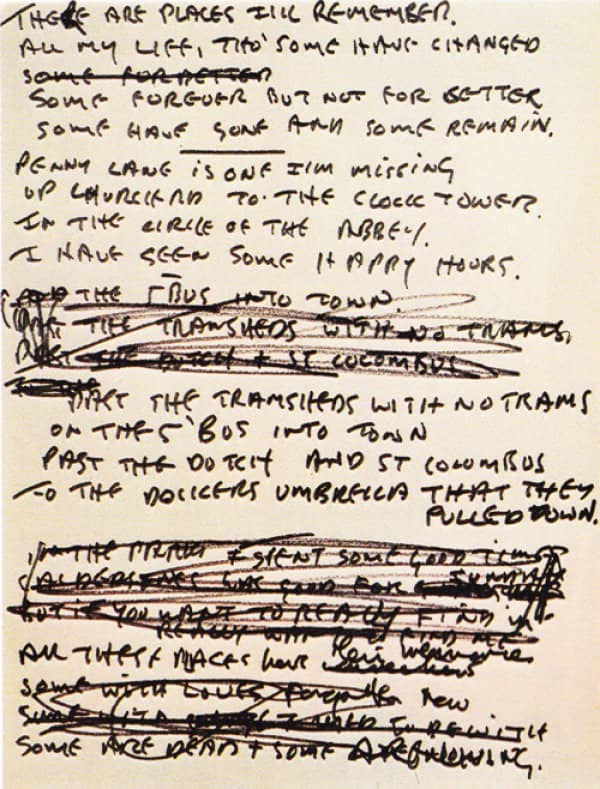 THERE ARE PLACES ILL REMEMBER.
ALL MY LIFE, THO' SOME HAVE CHANGED
SOME FOR BETTER
SOME FOREVER BUT NOT FOR BETTER
SOME HAVE GONE AND SOME REMAIN.
PENNY LANE IS ONE I'M MISSING
UP CHURCH RD TO THE CLOCK TOWER.
IN THE CIRCLE OF THE ABBEY.
I HAVE SEEN SOME HAPPY HOURS.
THE 5 BUS INTO TOWN.
PAST THE TRAMSHEDS WITH NO TRAMS,
PAST THE DUTCH + ST COLOMBUS
PAST THE TRAMSHEDS WITH NO TRAMS
ON THE 5 BUS INTO TOWN
PAST THE DUTCH AND ST COLOMBUS
TO THE DOCKERS UMBRELLA THAT THEY
PULLED DOWN.
IN THE PARK I SPENT SOME GOOD TIMES
WAS GOOD FOR
BUT IF YOU WANT TO REALLY FIND
REALLY WANT TO FIND ME
ALL THESE PLACES have
SOME WITH LOVES forgotten New
SOME WITH
SOME ARE DEAD + SOME ARE LIVING.